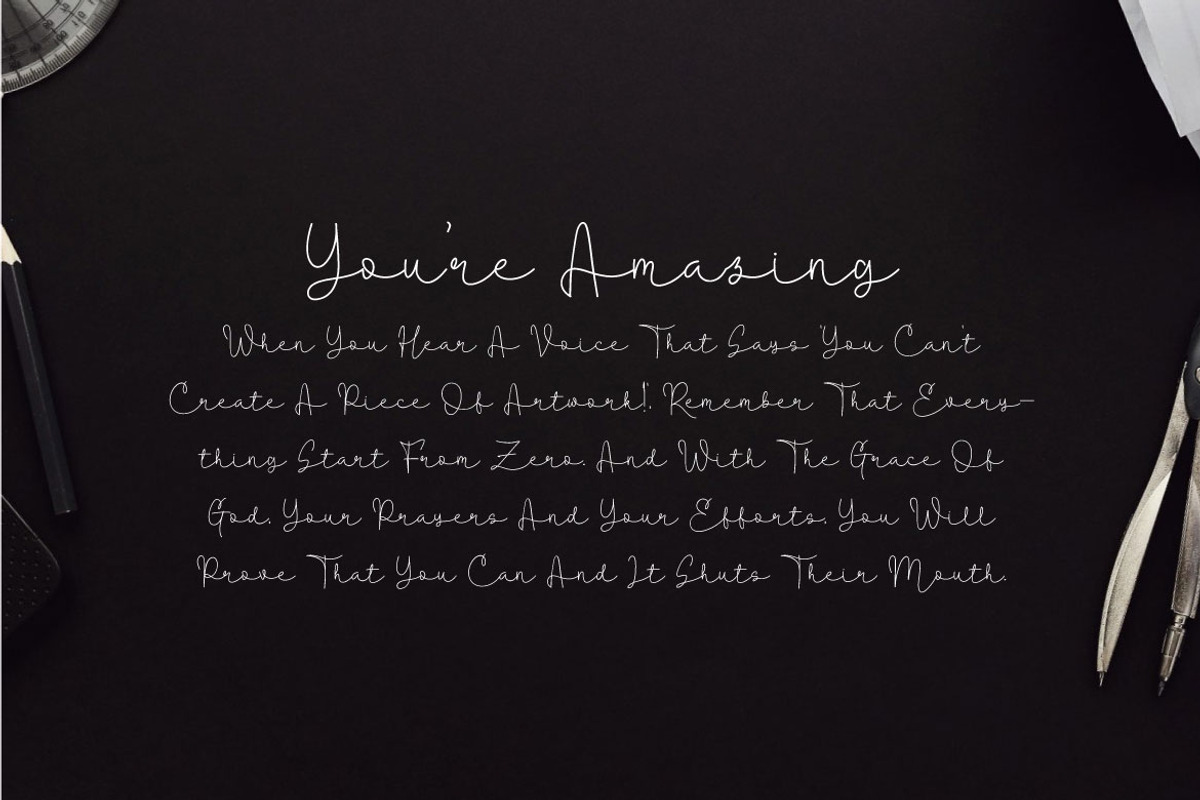 You're Amazing
When You Hear A Voice That Says 'You Can't
Create A Piece Of Artwork!'. Remember That Every-
thing Start From Zero. And With The Grace Of
God, Your Prayers And Your Efforts, You Will
Prove That You Can And It Shuts Their Mouth.